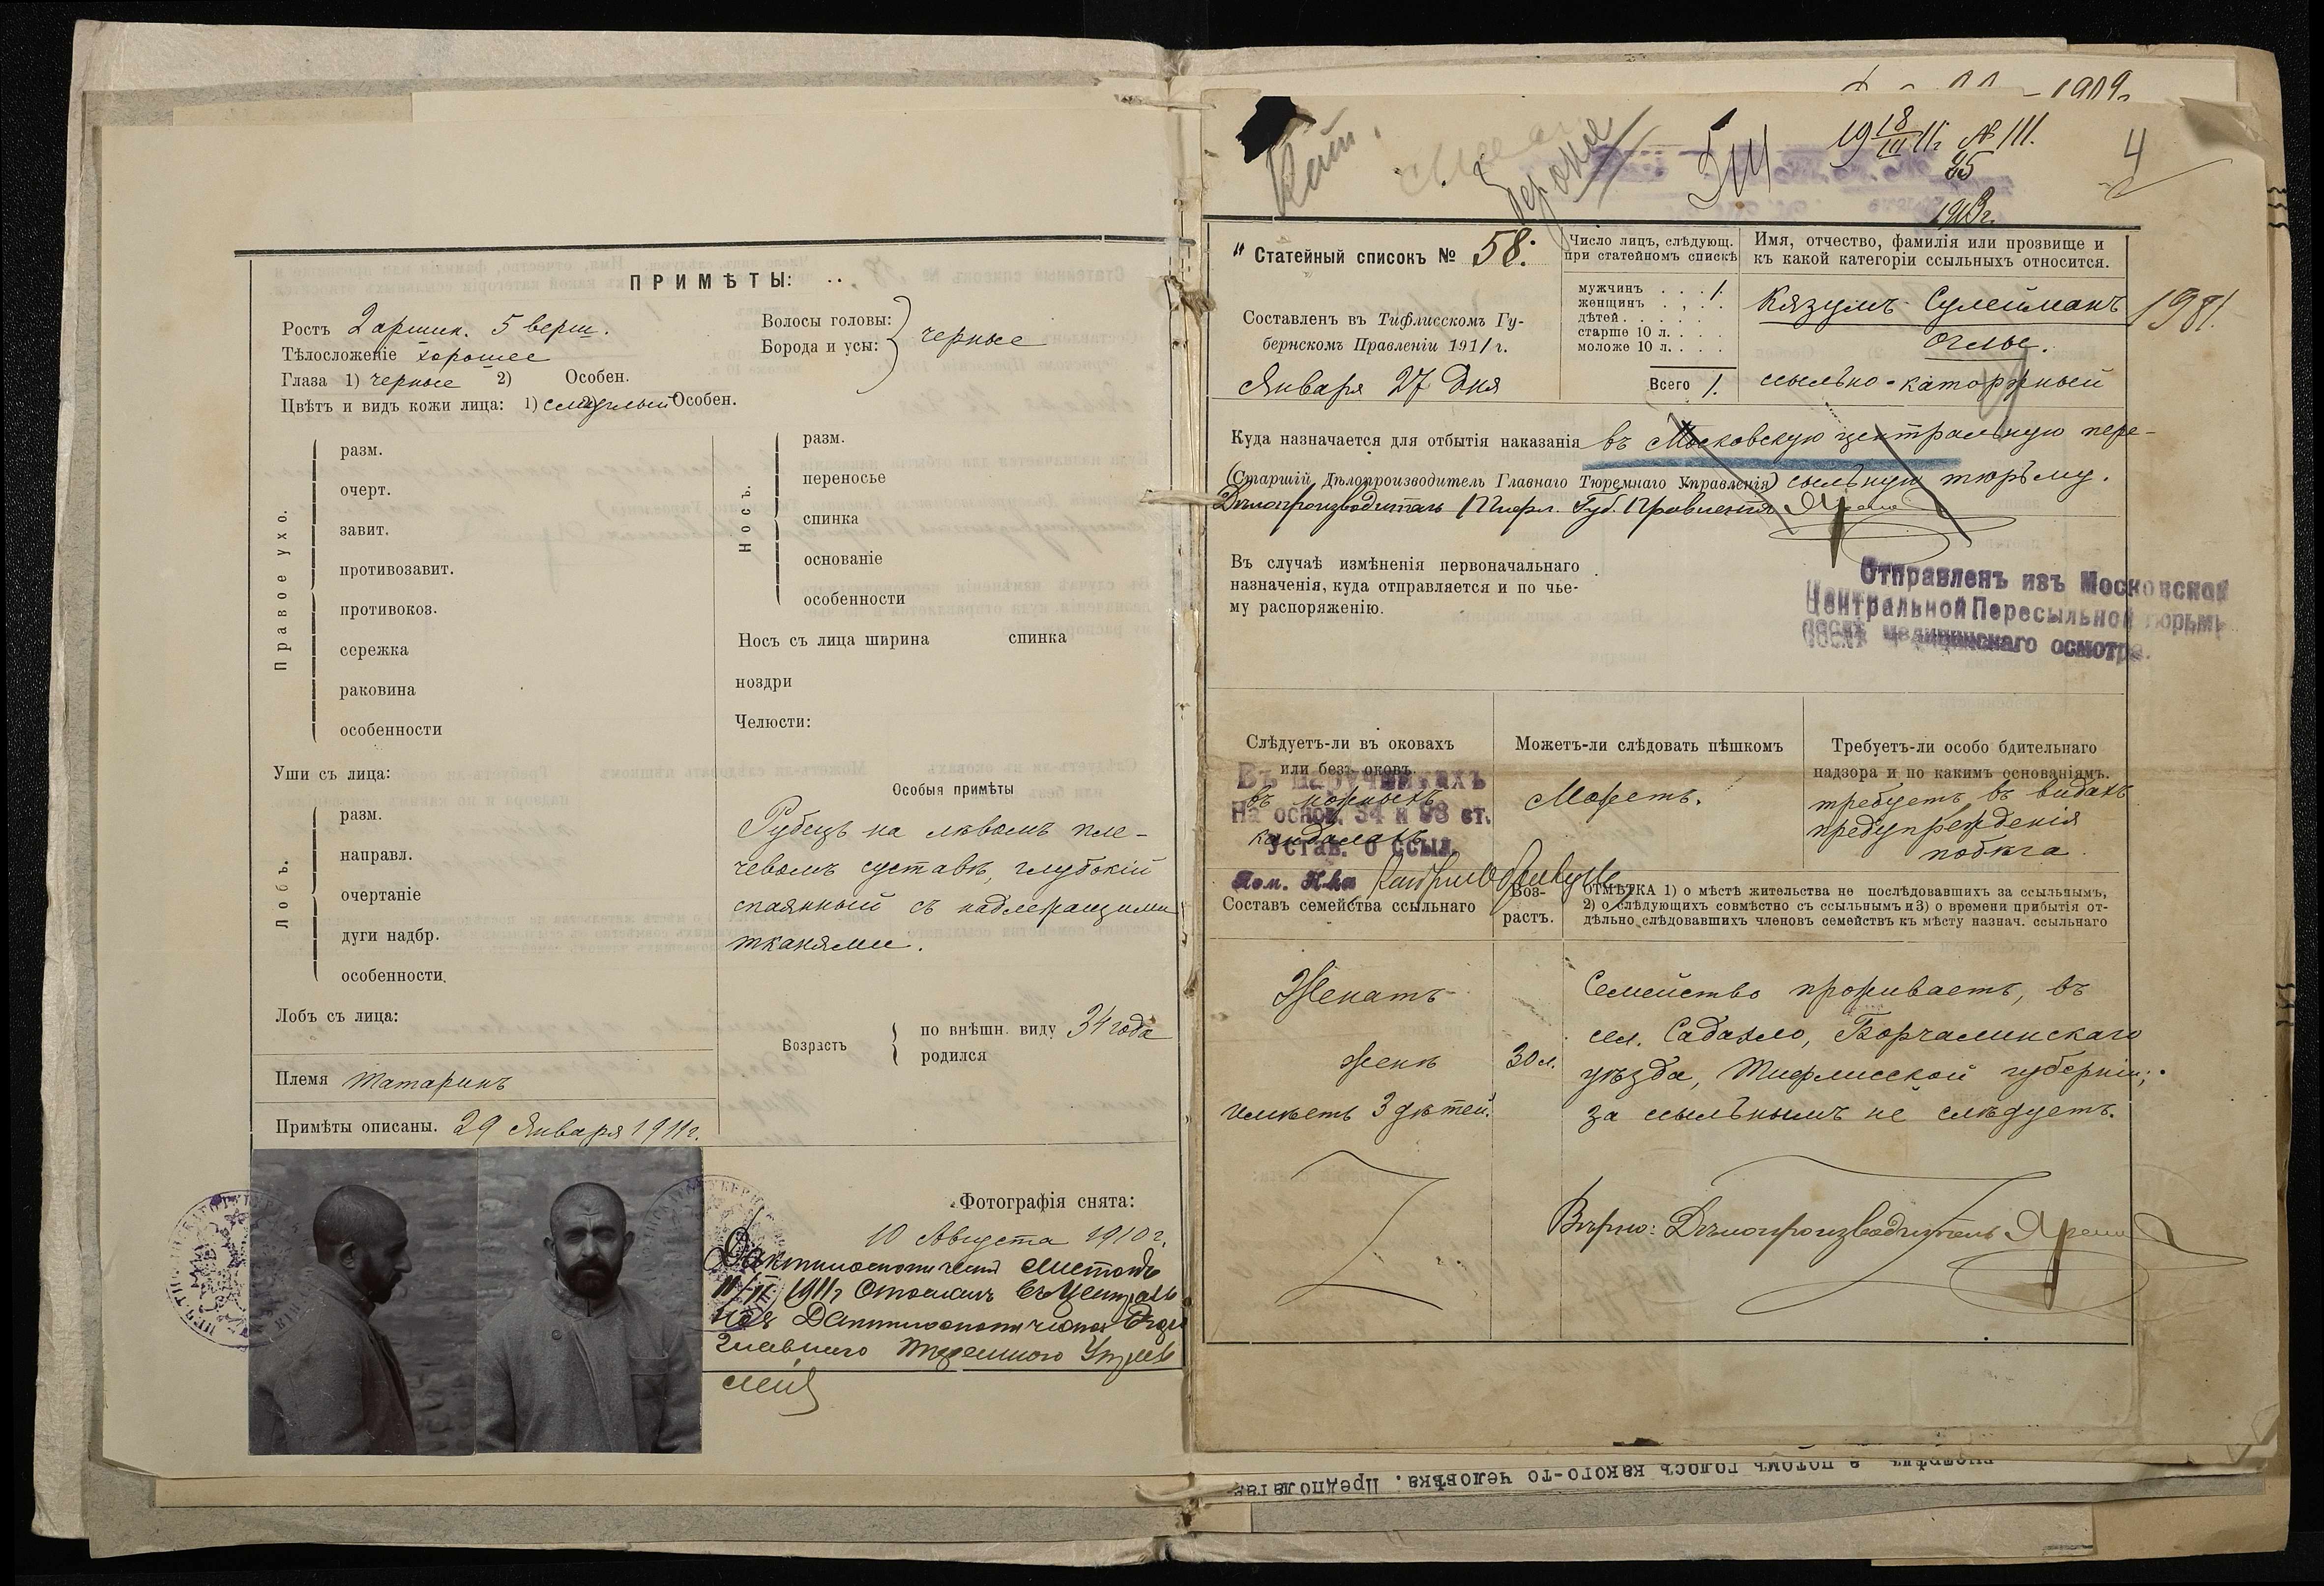 ПРИМѢТЫ:
Ростъ 2 аршин. 5 верш.
Тѣлосложеніе хорошее
Глаза 1) черные 2) Особен.
Цвѣтъ и видъ кожи лица: 1) смуглый 2) Особен.
Волосы головы:
Борода и усы:
черные
Правое ухо.
разм.
очерт.
завит.
противозавит.
противокоз.
сережка
раковина
особенности
Уши съ лица:
Лобъ.
разм.
направл.
очертаніе
дуги надбр.
особенности.
Лобъ съ лица:
Племя татаринъ
Примѣты описаны. 29 Января 1911 г.
Носъ.
разм.
переносье
спинка
основаніе
особенности
Носъ съ лица ширина спинка
ноздри
Челюсти:
Особыя примѣты
Рубецъ на лѣвомъ пле-
чевомъ суставѣ, глубокій
спаянный съ надлежащими
тканями.
Возрастъ
по внѣшн. виду 34 года
родился
Фотографія снята:
10 Августа 1910 г.
Дактилоскопическій листокъ
1911 г. отосланъ въ Централь
ное Дактилоскопическое
Главнаго Тюремнаго Управ
Кат.
19 18/III 11 г. № 111.
4
"Статейный списокъ № 58.
Составленъ въ Тифлисскомъ Гу-
бернскомъ Правленіи 1911 г.
Января 27 дня
Число лицъ, слѣдующ.
при статейномъ спискѣ
мужчинъ . . . 1.
женщинъ . . .
дѣтей . . . . .
старше 10 л. . . .
моложе 10 л. . . .
Всего 1.
Имя, отчество, фамилія или прозвище и
къ какой категоріи ссыльныхъ относится.
Кязумъ Сулейманъ
Оглы.
ссыльно-каторжный
1981.
Куда назначается для отбытія наказанія въ Московскую центральную пере-
(Старшій Дѣлопроизводитель Главнаго Тюремнаго Управленія) сыльную тюрьму.
Дѣлопроизводитель Тифл. Губ. Правленія
Въ случаѣ измѣненія первоначальнаго
назначенія, куда отправляется и по чье-
му распоряженію.
Отправленъ изъ Московской
Центральной Пересыльной тюрьмы
послѣ медицинскаго осмотра.
Слѣдуетъ-ли въ оковахъ
или безъ оковъ.
Въ наручникахъ
въ ножныхъ
На основ. 34 и 98 ст.
кандалахъ
Устав. о ссыл.
Пом. Н-ка
Можетъ-ли слѣдовать пѣшкомъ
Можетъ.
Требуетъ-ли особо бдительнаго
надзора и по какимъ основаніямъ.
требуетъ въ видахъ
предупрежденія
побѣга.
Составъ семейства ссыльнаго
Воз-
растъ.
ОТМѢТКА 1) о мѣстѣ жительства не послѣдовавшихъ за ссыльнымъ,
2) о слѣдующихъ совмѣстно съ ссыльнымъ и 3) о времени прибытія от-
дѣльно слѣдовавшихъ членовъ семействъ къ мѣсту назнач. ссыльнаго
Женатъ
женѣ 30 л.
имѣетъ 3 дѣтей.
Семейство проживаетъ, въ
сел. Садахло, Борчалинскаго
уѣзда, Тифлисской губерніи;
за ссыльнымъ не слѣдуетъ.
Вѣрно: Дѣлопроизводитель
а потомъ голосъ какого-то человѣка. Предполагая